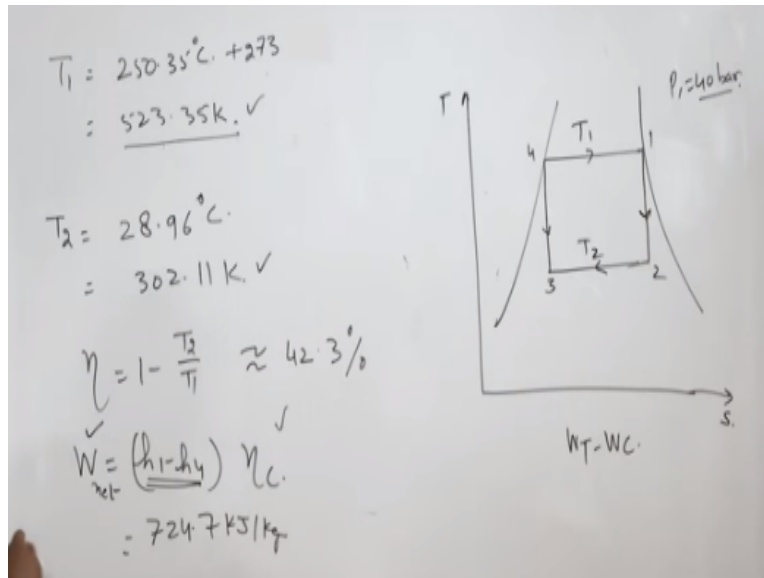 T₁ = 250.35°C. +273
= 523.35K. ✓
T₂ = 28.96°C.
= 302.11 K ✓
η = 1 - T₂/T₁ ≈ 42.3%
✓ ✓
Wnet = (h₁-h₄) ηc.
= 724.7 KJ/kg
P₁=40 bar.
T
4 T₁ 1
T₂
3 2
S.
WT-WC.